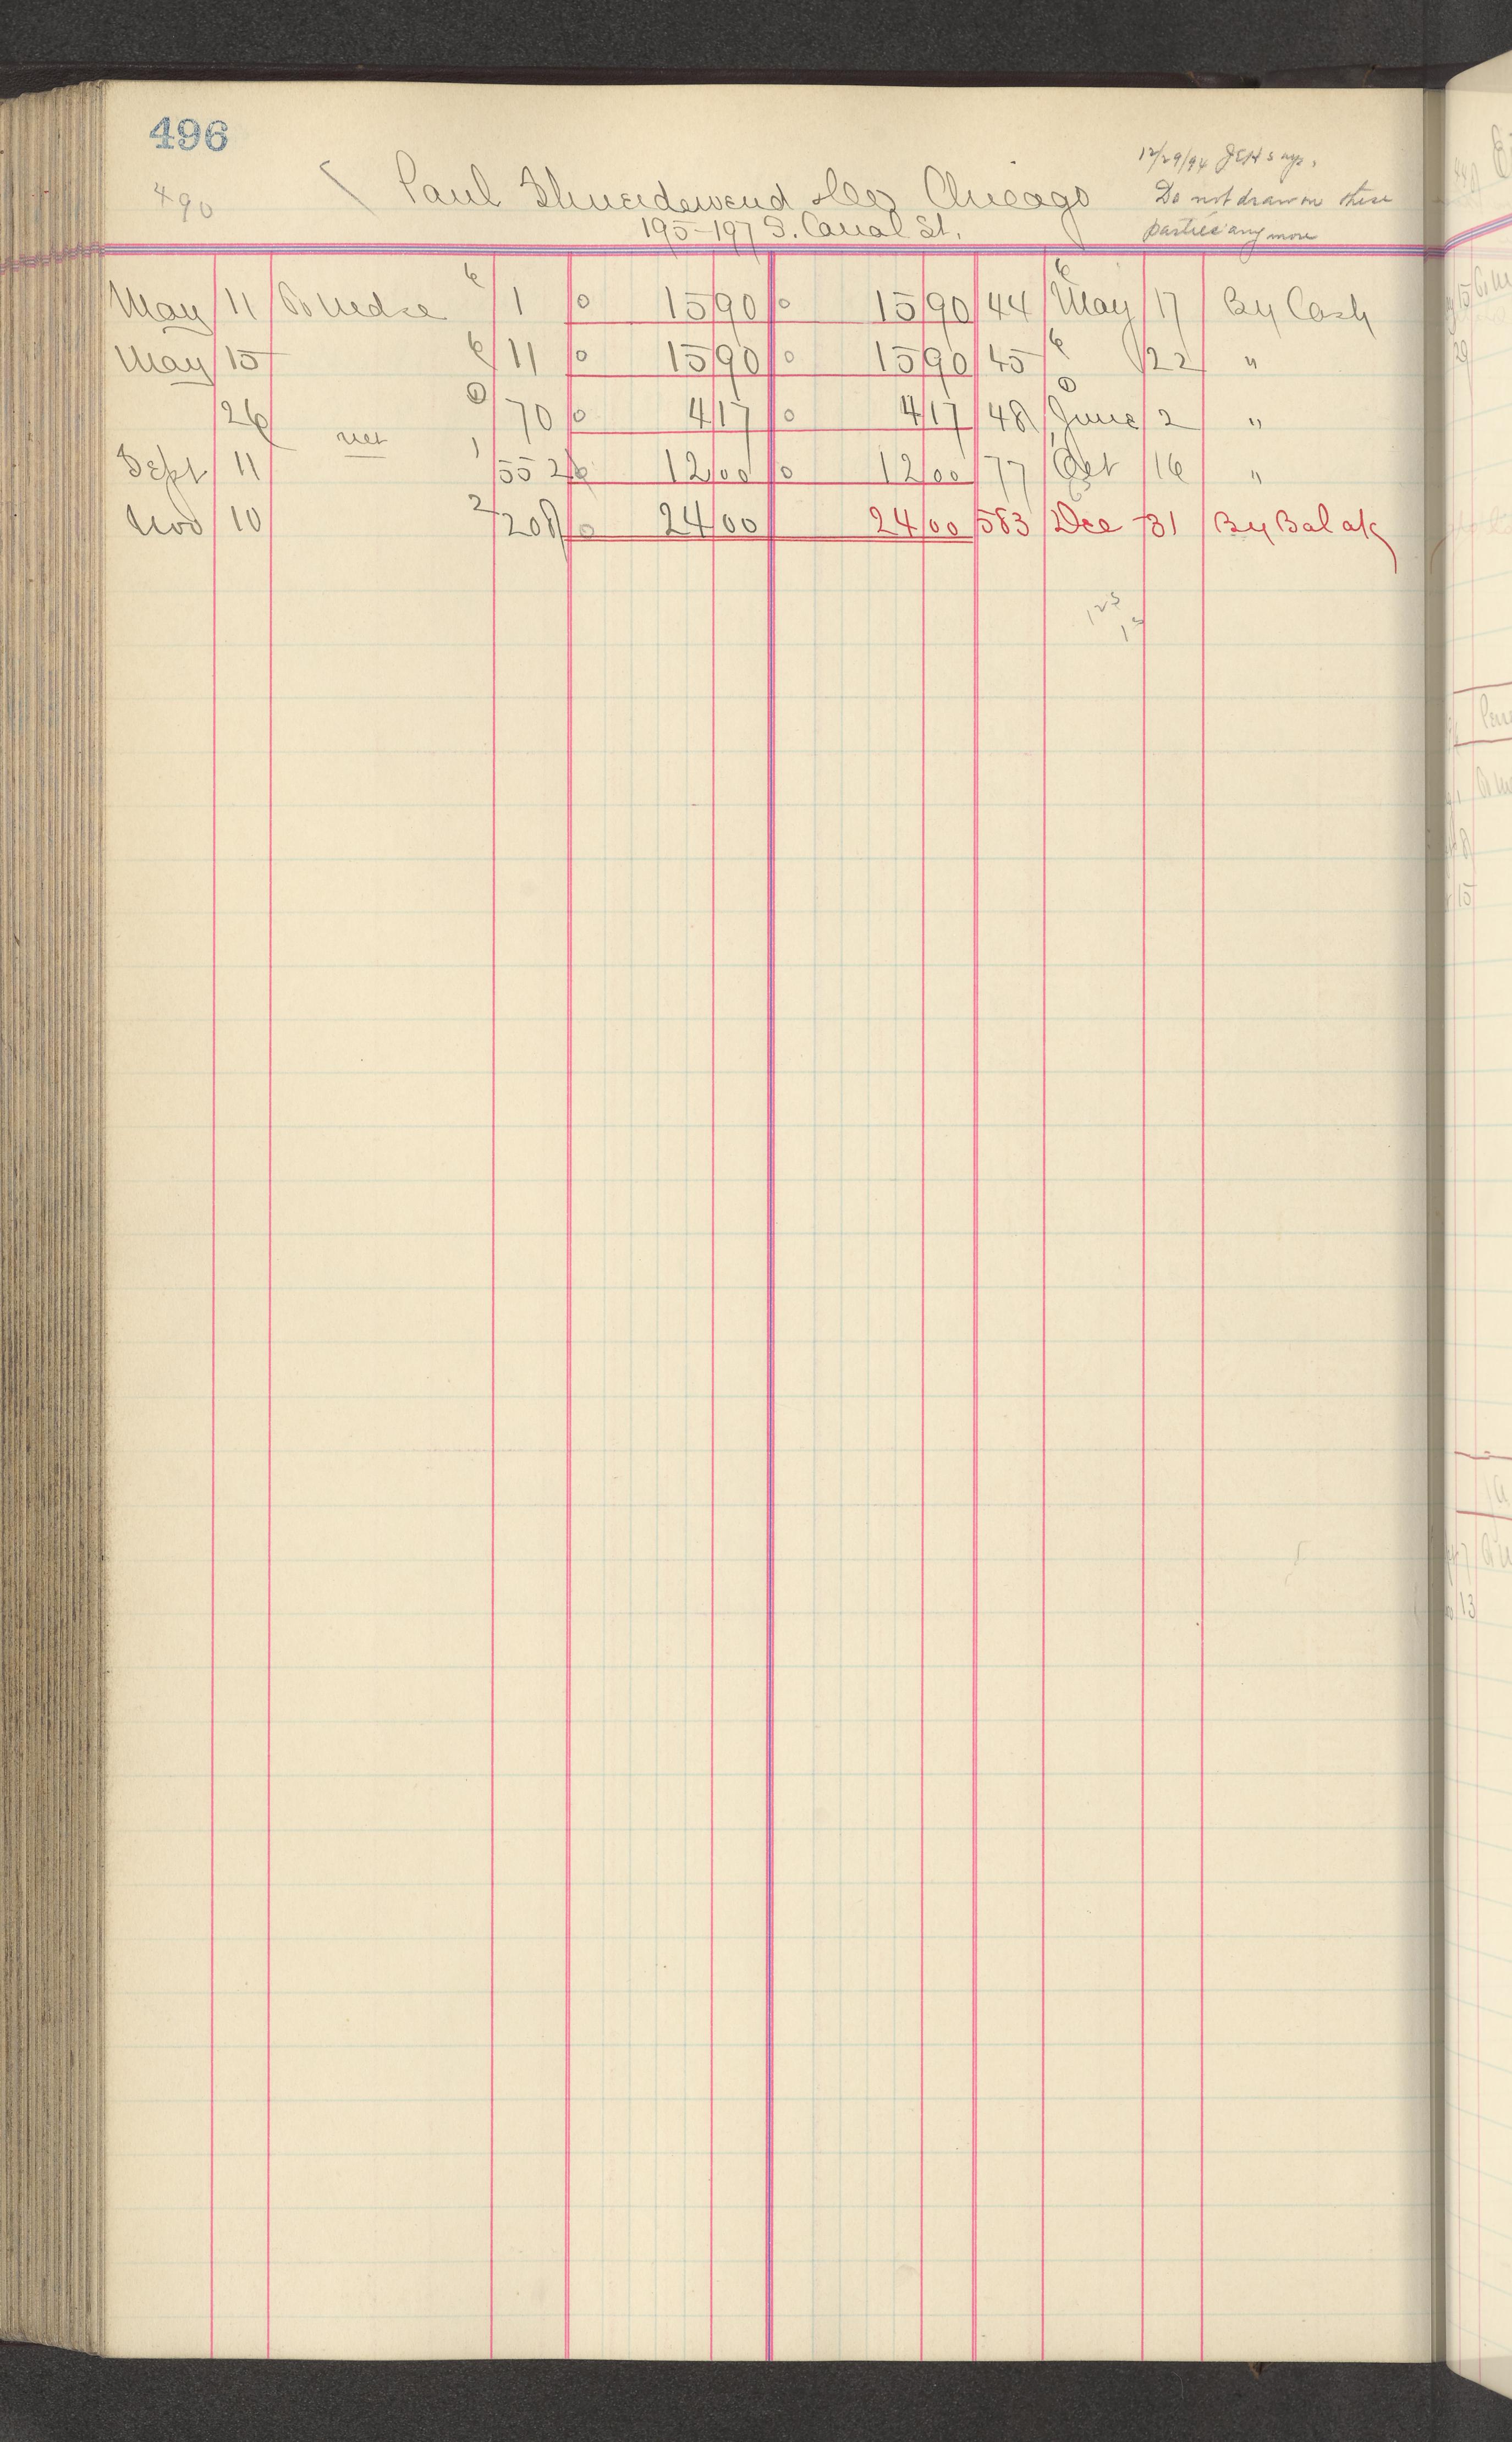 496
490
12/29/94 JCH says,
Paul Shniedewend & Co Chicago
Do not draw on these
195-197 S. Canal St.
parties any more
May 11 To Mdse 6 1 0 15 90 0 15 90 44 6 May 17 By Cash
May 15 6 11 0 15 90 0 15 90 45 6 22 "
26 0 70 0 4 17 0 4 17 48 0 June 2 "
Sept 11 net 1 552 0 12 00 0 12 00 77 Oct 16 "
Nov 10 2 208 0 24 00 24 00 583 Dec 31 By Bal